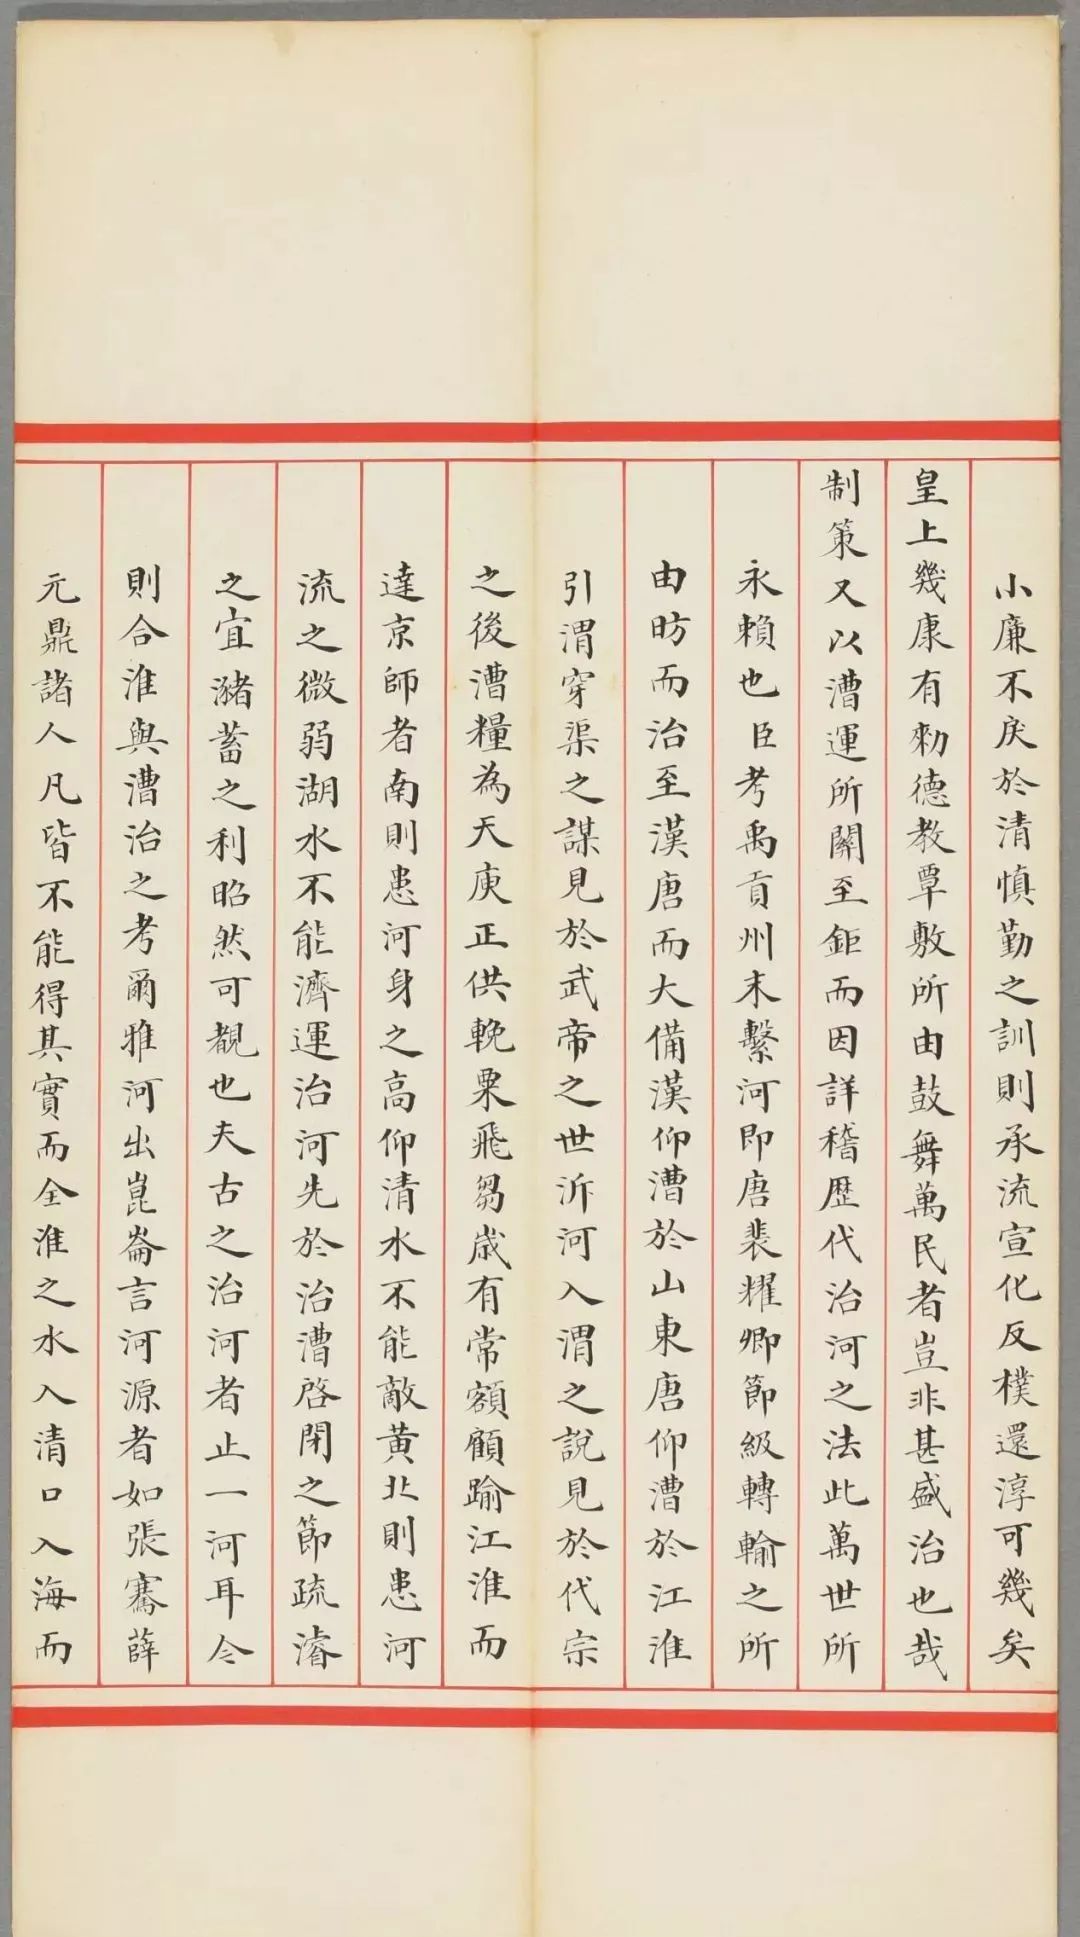 小廉不戾於清慎勤之訓則承流宣化反樸還淳可幾矣
皇上幾康有勑德教覃敷所由鼓舞萬民者豈非甚盛治也哉
制策又以漕運所關至鉅而因詳稽歷代治河之法此萬世所
永賴也臣考禹貢州末繫河即唐裴耀卿節級轉輸之所
由昉而治至漢唐而大備漢仰漕於山東唐仰漕於江淮
引渭穿渠之謀見於武帝之世沂河入渭之說見於代宗
之後漕糧為天庾正供輓粟飛芻歲有常額顧踰江淮而
達京師者南則患河身之高仰清水不能敵黃北則患河
流之微弱湖水不能濟運治河先於治漕啓閉之節疏濬
之宜瀦蓄之利昭然可覩也夫古之治河者止一河耳今
則合淮與漕治之考爾雅河出崑崙言河源者如張騫薛
元鼎諸人凡皆不能得其實而全淮之水入清口入海而